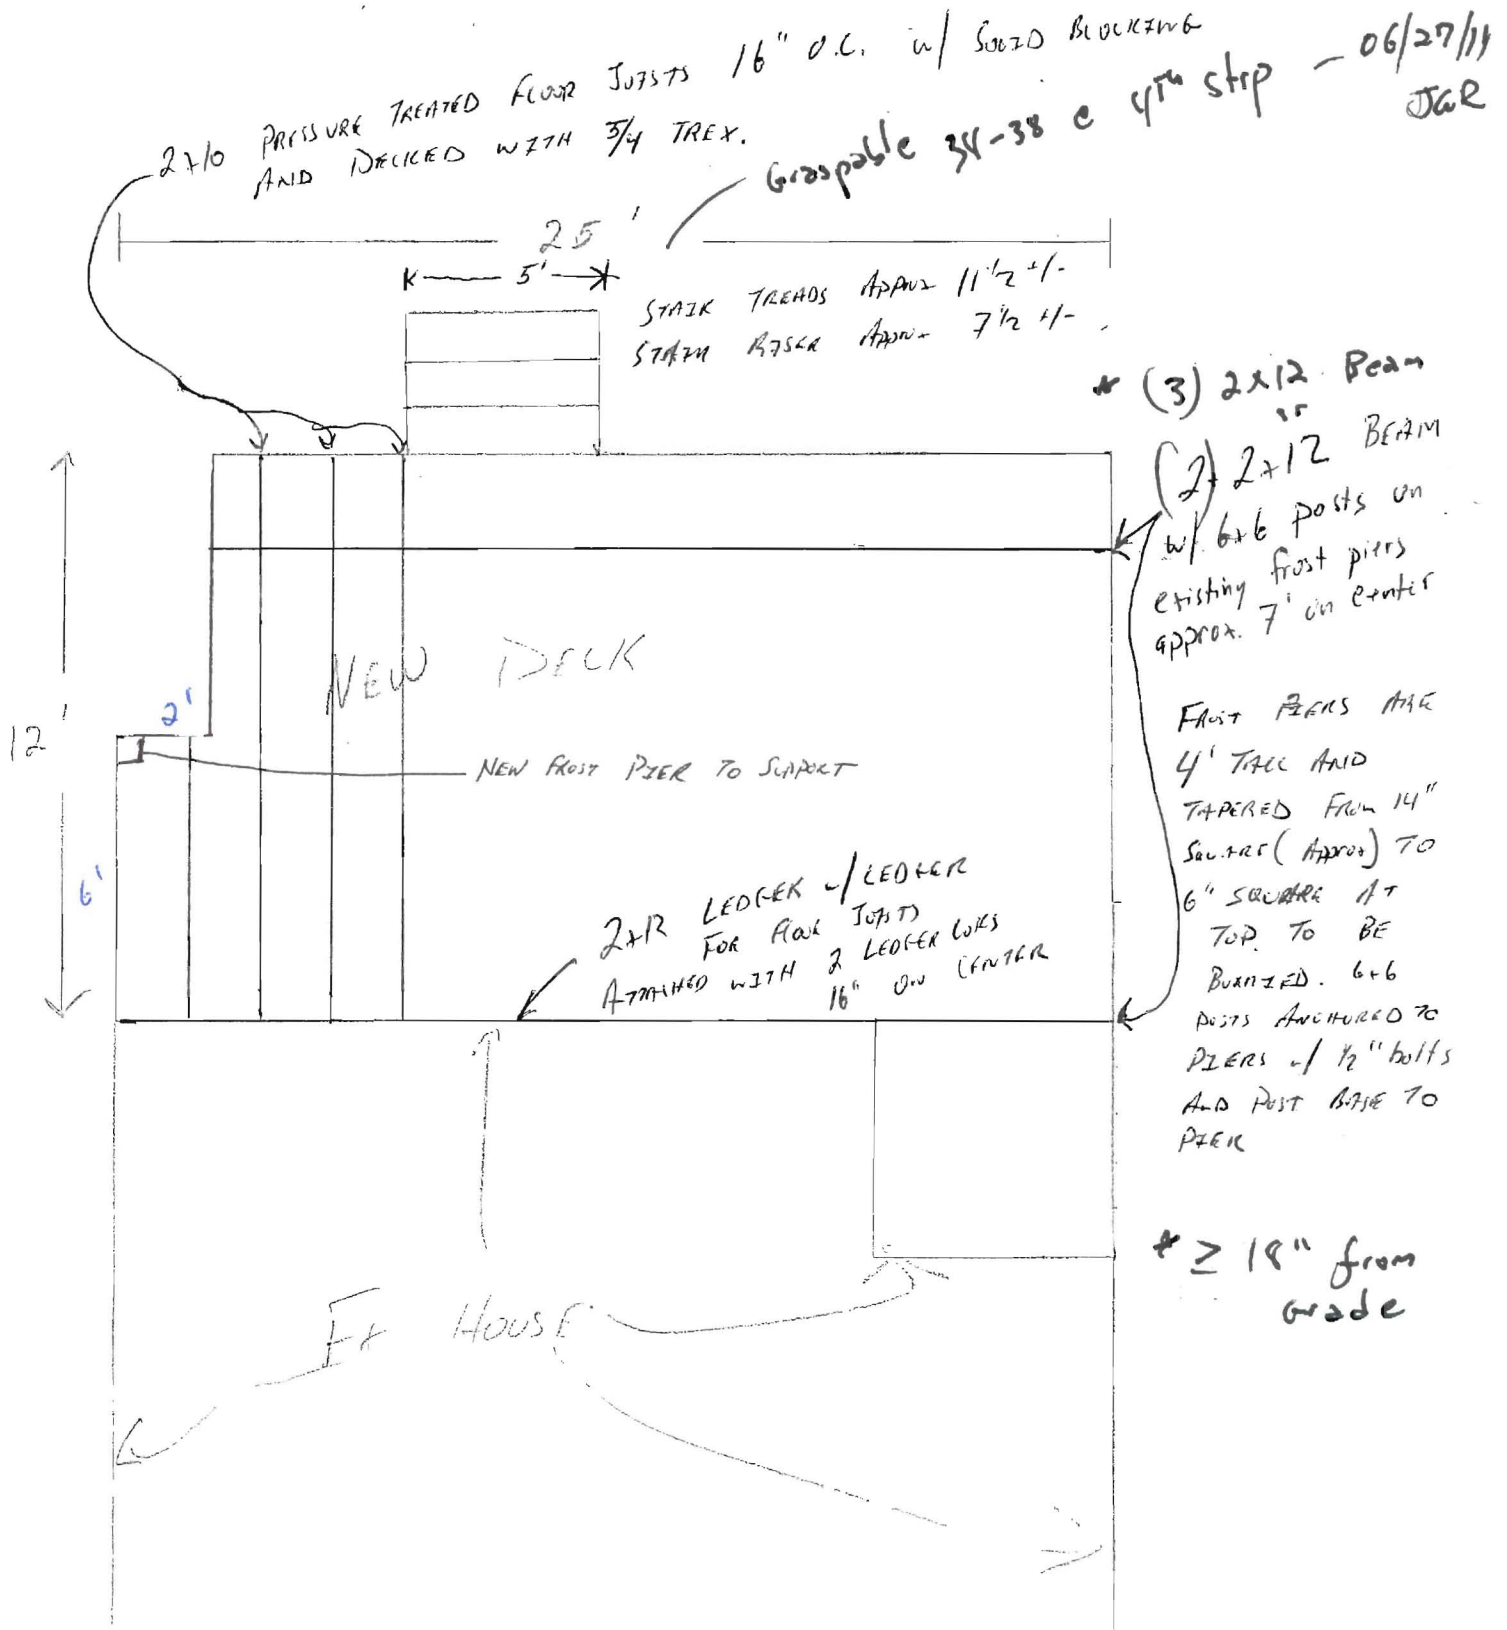 2x10 PRESSURE TREATED FLOOR JOISTS 16" O.C. w/ SOLID BLOCKING
AND DECKED WITH 5/4 TREX.
Graspable 34-38 @ 4th step - 06/27/11
JGR
25'
5'
STAIR TREADS APPROX 11 1/2 +/-
STAIR RISER APPROX 7 1/2 +/-
* (3) 2x12 Beam
or
(2) 2x12 BEAM
w/ 6x6 posts on
existing frost piers
approx. 7' on center
NEW DECK
12'
2'
6'
NEW FROST PIER TO SUPPORT
FROST PIERS ARE
4' TALL AND
TAPERED FROM 14"
SQUARE (Approx) TO
6" SQUARE AT
TOP. TO BE
BURIED. 6x6
POSTS ANCHORED TO
PIERS w/ 1/2" bolts
AND POST BASE TO
PIER
2x12 LEDGER w/ LEDGER
FOR FLOOR JOISTS
ATTACHED WITH 2 LEDGER LOKS
16" ON CENTER
* ≥ 18" from
Grade
EX HOUSE